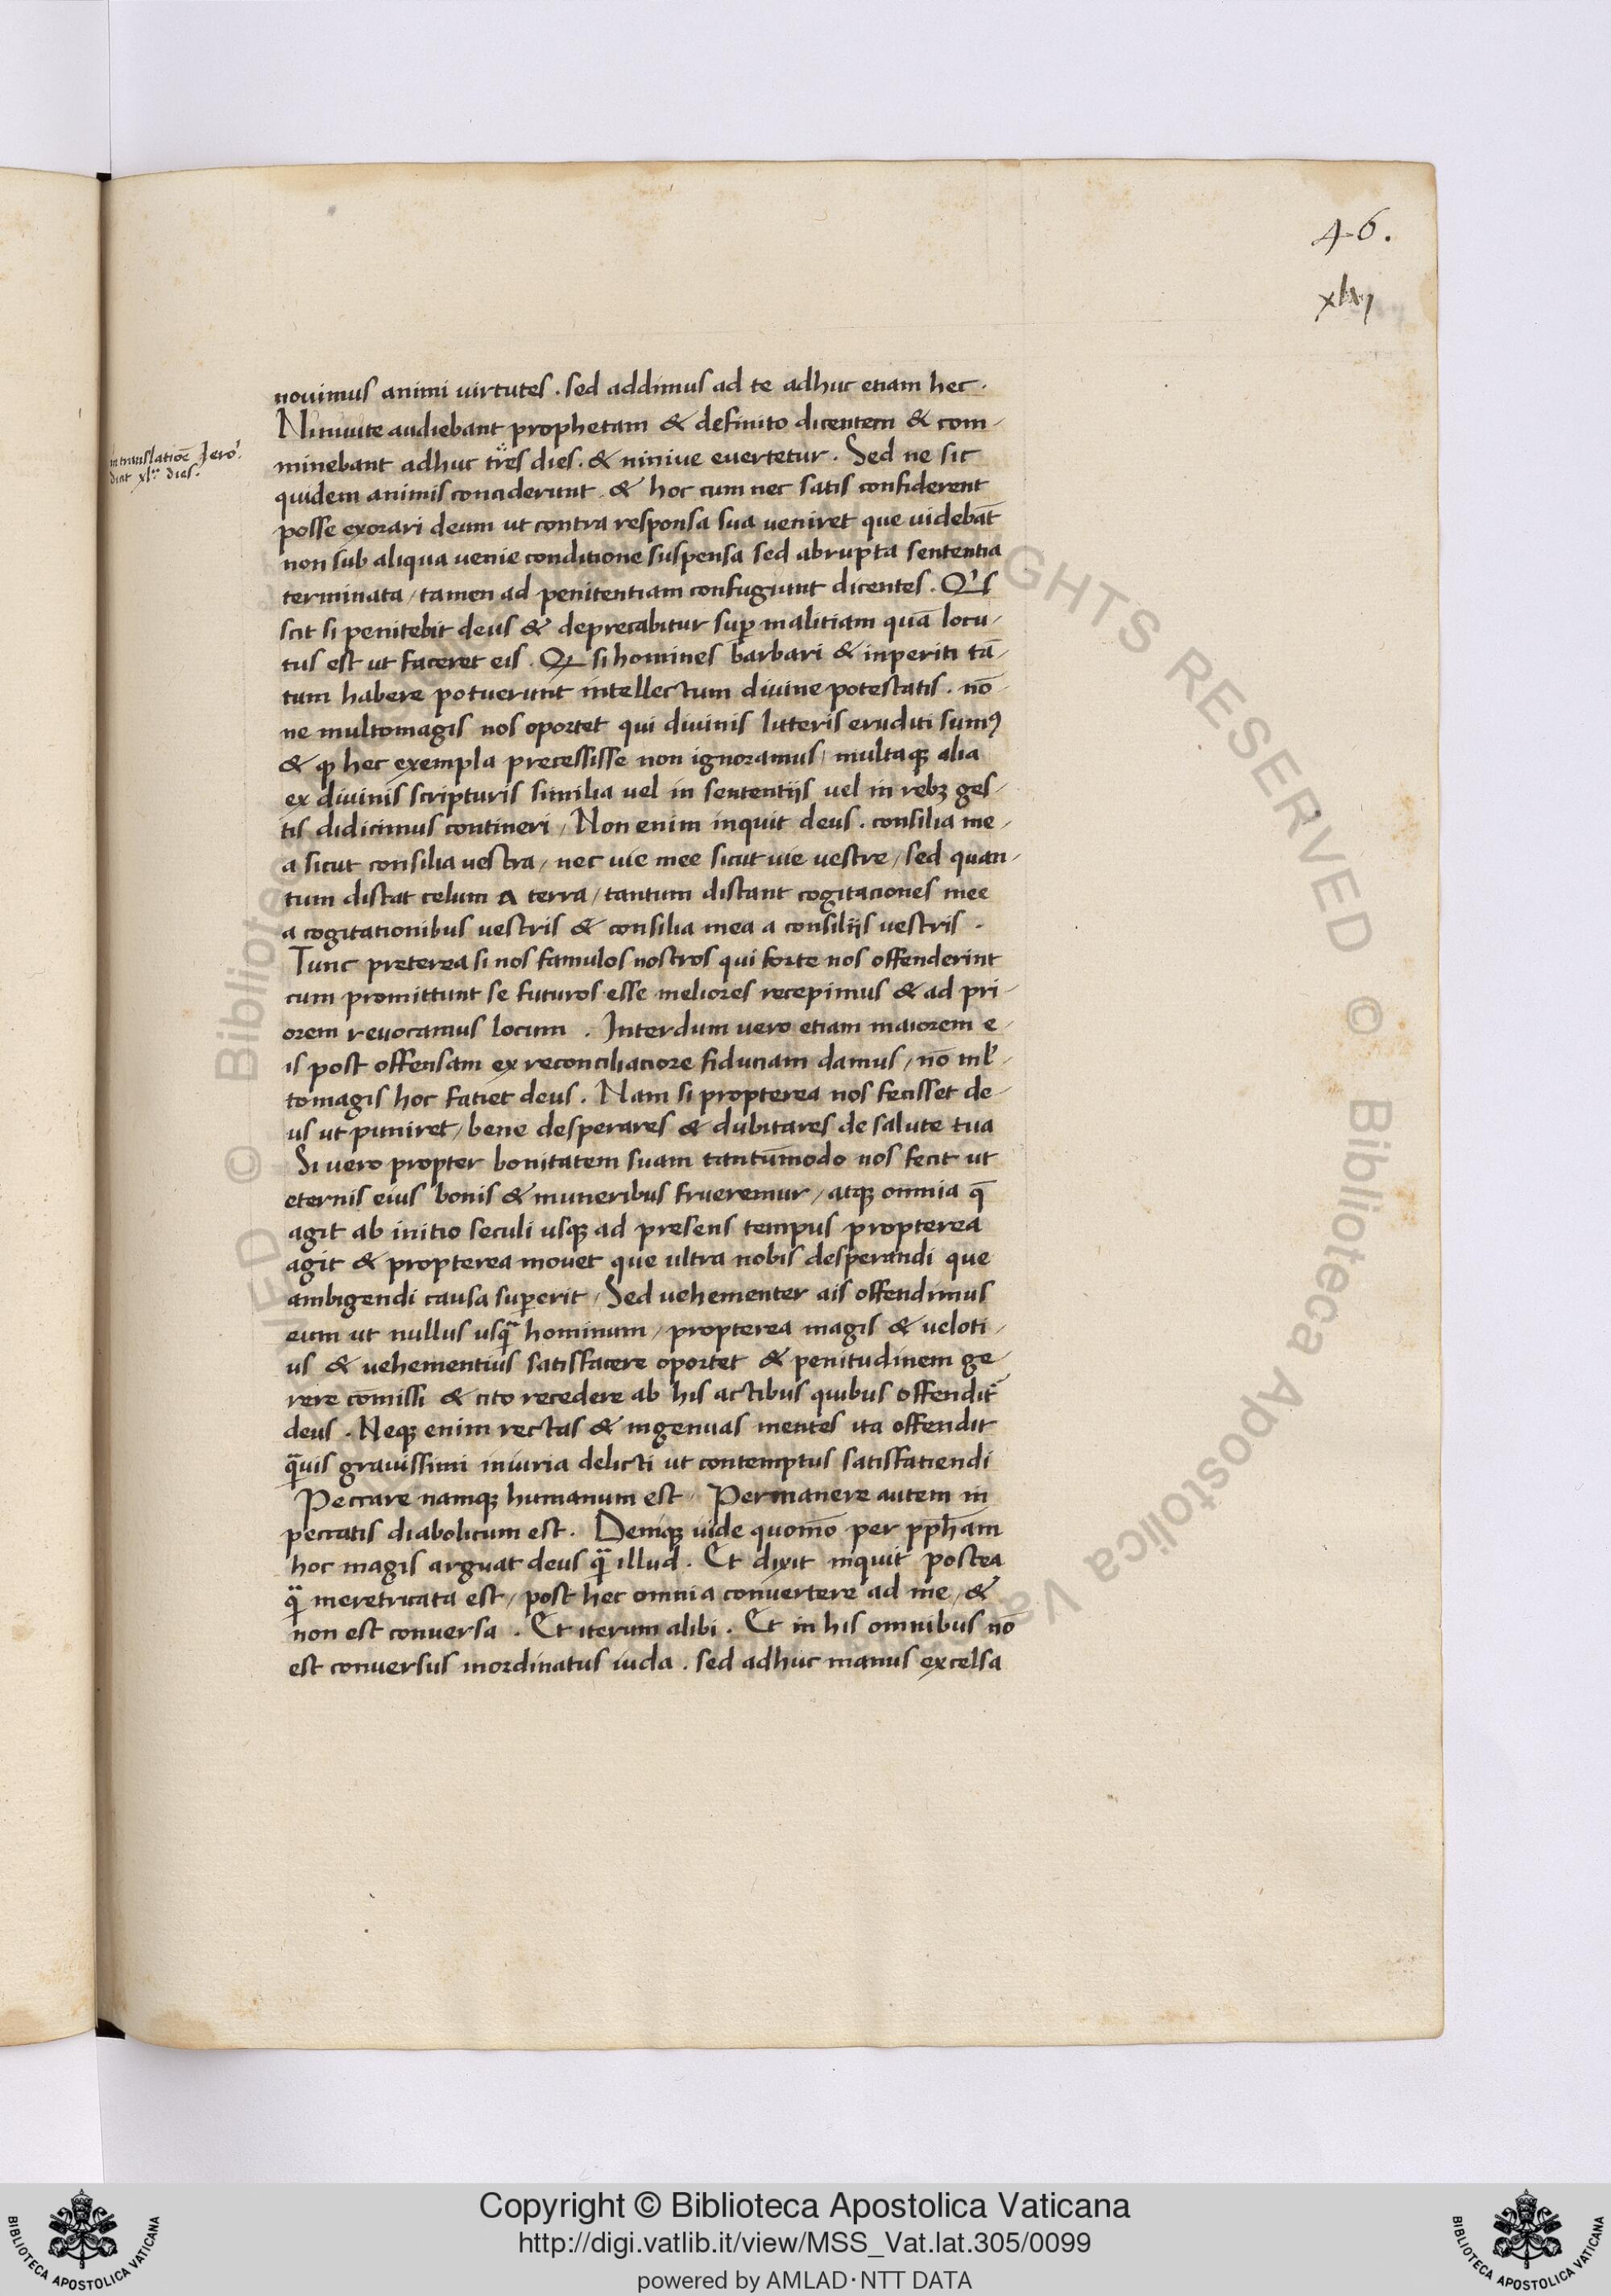 46.
xlvj
novimus animi virtutes . sed addimus ad te adhuc etiam hec .
Ninivite audiebant prophetam & definito dicentem & com-
in translatiōe Jero'.
dicit xl.ta dies.
minebant adhuc tres dies . & ninive evertetur . Sed ne sic
quidem animis conciderunt . & hoc cum nec satis confiderent
posse exorari deum ut contra responsa sua veniret que videbāt
non sub aliqua venie conditione suspensa sed abrupta sententia
terminata / tamen ad penitentiam confugiunt dicentes . Qi's
scit si penitebit deus & deprecabitur suꝑ malitiam quā locu-
tus est ut faceret eis . Qꝫ si homines barbari & inperiti tā-
tum habere potuerunt intellectum divine potestatis . nō-
ne multomagis nos oportet qui divinis litteris eruditi sumꝰ
& ꝙ hec exempla precessisse non ignoramus / multaqꝫ alia
ex divinis scripturis similia vel in sententijs vel in rebꝫ ges-
tis didicimus contineri / Non enim inquit deus . consilia me-
a sicut consilia vestra / nec vie mee sicut vie vestre / sed quan-
tum distat celum a terra / tantum distant cogitaciones mee
a cogitationibus vestris & consilia mea a consilijs vestris .
Tunc preterea si nos famulos nostros qui forte nos offenderint
cum promittunt se futuros esse meliores recepimus & ad pri-
orem revocamus locum . Interdum vero etiam maiorem e-
is post offensam ex reconciliacione fiduciam damus / nō ml'-
tomagis hoc faciet deus . Nam si propterea nos fecisset de-
us ut puniret / bene desperares & dubitares de salute tua
Si vero propter bonitatem suam tantūmodo nos fecit ut
eternis eius bonis & muneribus frueremur / atqꝫ omnia q̄
agit ab initio seculi usqꝫ ad presens tempus propterea
agit & propterea movet que ultra nobis desperandi que
ambigendi causa suꝑerit / Sed vehementer ais offendimus
eum ut nullus usqᷓ hominum / propterea magis & veloti-
us & vehementius satisfacere oportet & penitudinem ge-
rere cōmissi & cito recedere ab his actibus quibus offendit̄
deus . Neqꝫ enim rectas & ingenuas mentes ita offendit
qᷓvis gravissimi iniuria delicti ut contemptus satisfatiendi
Peccare namqꝫ humanum est . Permanere autem in
peccatis diabolicum est . Deniqꝫ vide quomō per ꝓph̄am
hoc magis arguat deus qᷓ illud . Et dixit inquit postea
qᷓ meretricata est / post hec omnia convertere ad me / &
non est conversa . Et iterum alibi . Et in his omnibus nō
est conversus inordinatus iuda . sed adhuc manus excelsa
Copyright © Biblioteca Apostolica Vaticana
http://digi.vatlib.it/view/MSS_Vat.lat.305/0099
powered by AMLAD·NTT DATA
BIBLIOTECA APOSTOLICA VATICANA
BIBLIOTECA APOSTOLICA VATICANA